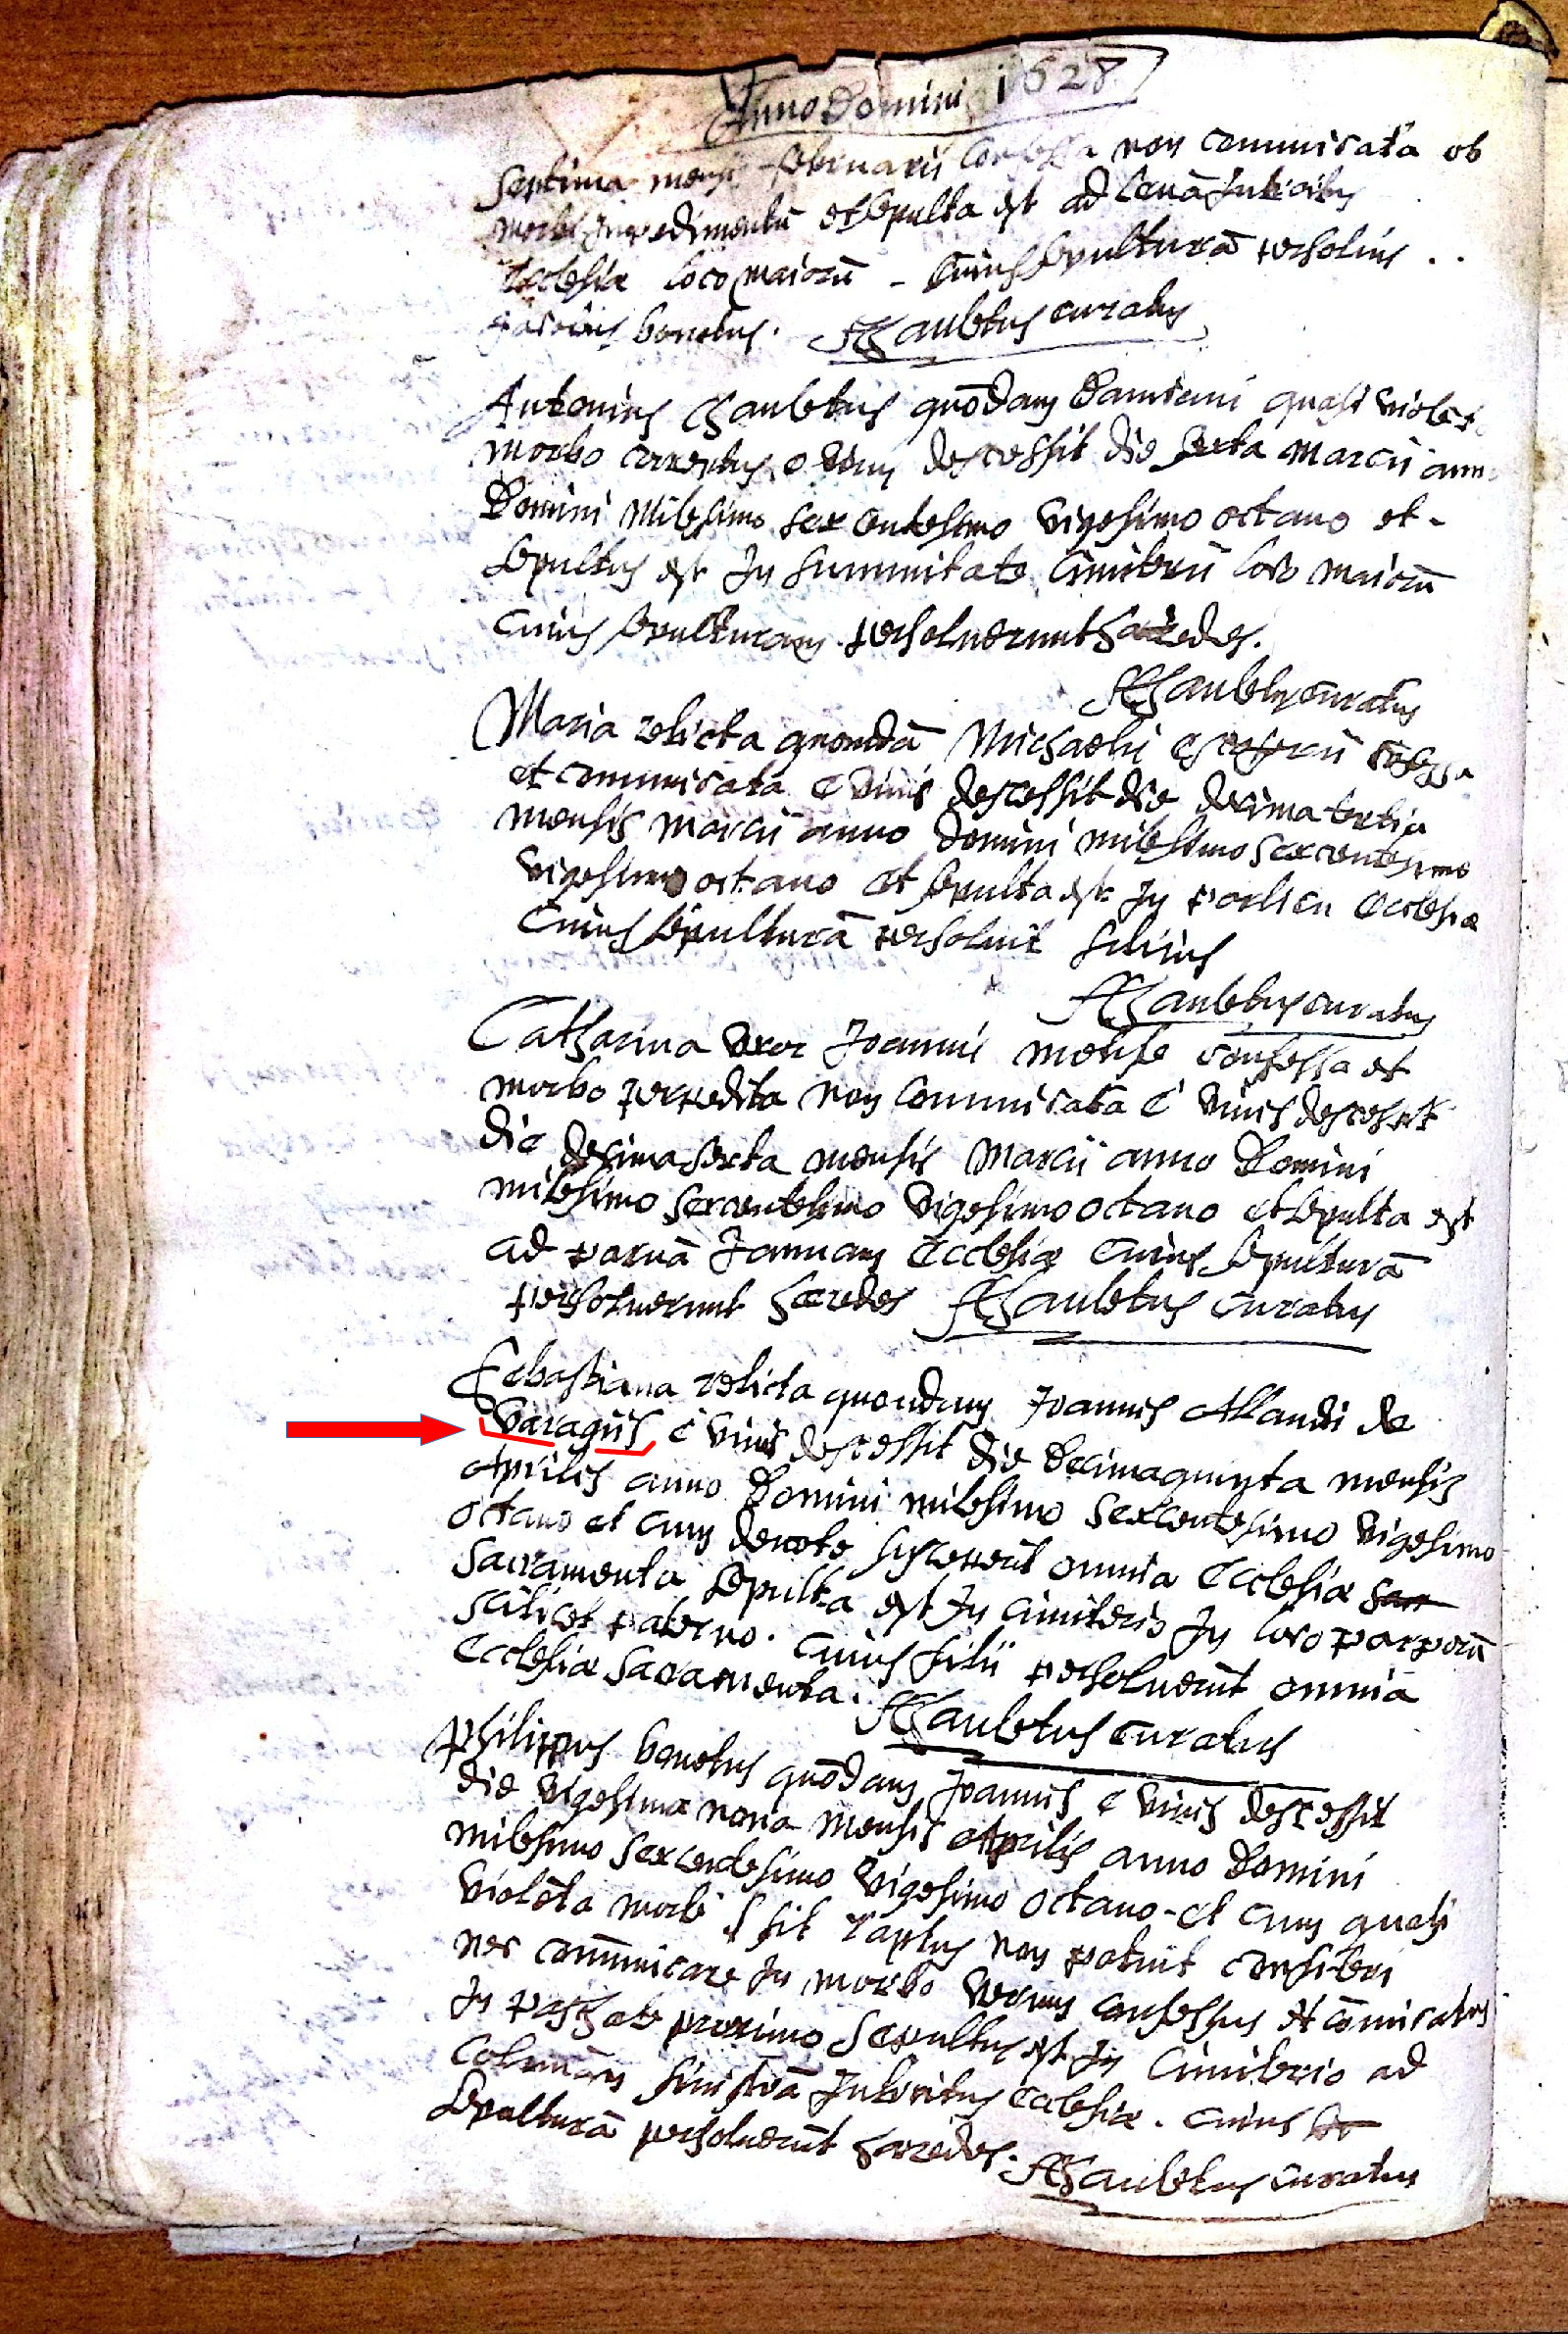 Anno Domini 1628
Septima mensis februarii confessa non communicata ob
morbi impedimentū et sepulta est ad
Ecclesiæ loco maiorū - Cuius sepulturā persoluit
bonetus. Chaubetus curatus
Antonius Chaubetus quōdam Damiani quasi violēto
morbo correptus e vivis decessit die sexta Marcii anno
Domini Milesimo sexcentesimo vigesimo octavo et -
sepultus est In summitate Cimiterii loco maiorū
Cuius sepulturam persoluerunt hæredes.
Chaubetus curatus
Maria relicta quondā Michaelis confessa
et communicata e vivis decessit die decima tertia
mensis Marcii anno Domini milesimo sexcentesimo
vigesimo octavo et sepulta est In porticu Ecclesiæ
Cuius sepulturā persoluit filius
Chaubetus curatus
Catharina uxor Joannis confessa et
morbo non communicata è vivis decessit
die decima sexta mensis Marcii anno Domini
milesimo sexcentesimo vigesimo octavo et sepulta est
ad parvā Januam Ecclesiæ Cuius sepulturā
persoluerunt hæredes Chaubetus curatus
Sebastiana relicta quondam Joannis Allaudi de
Varagiis è vivis decessit die decimaquinta mensis
Aprilis anno Domini milesimo sexcentesimo vigesimo
octavo et cum devote susceperit omnia Ecclesiæ sacr
Sacramenta sepulta est In cimiterio In loco
scilicet paterno. Cuius filii persoluerūt omnia
Ecclesiæ Sacramenta. Chaubetus curatus
Philippus bonetus quōdam Joannis e vivis decessit
die vigesima nona mensis Aprilis anno Domini
milesimo sexcentesimo vigesimo octavo - et cum quasi
violēta morbi sit raptus non potuit confiteri
nec commūnicare In morbo verum confessus et cōmunicatus
In paschate proximo Sepultus est In Cimiterio ad
sinistrā Introitus Ecclesiæ. Cuius se
sepulturā persoluerūt hæredes. Chaubetus curatus